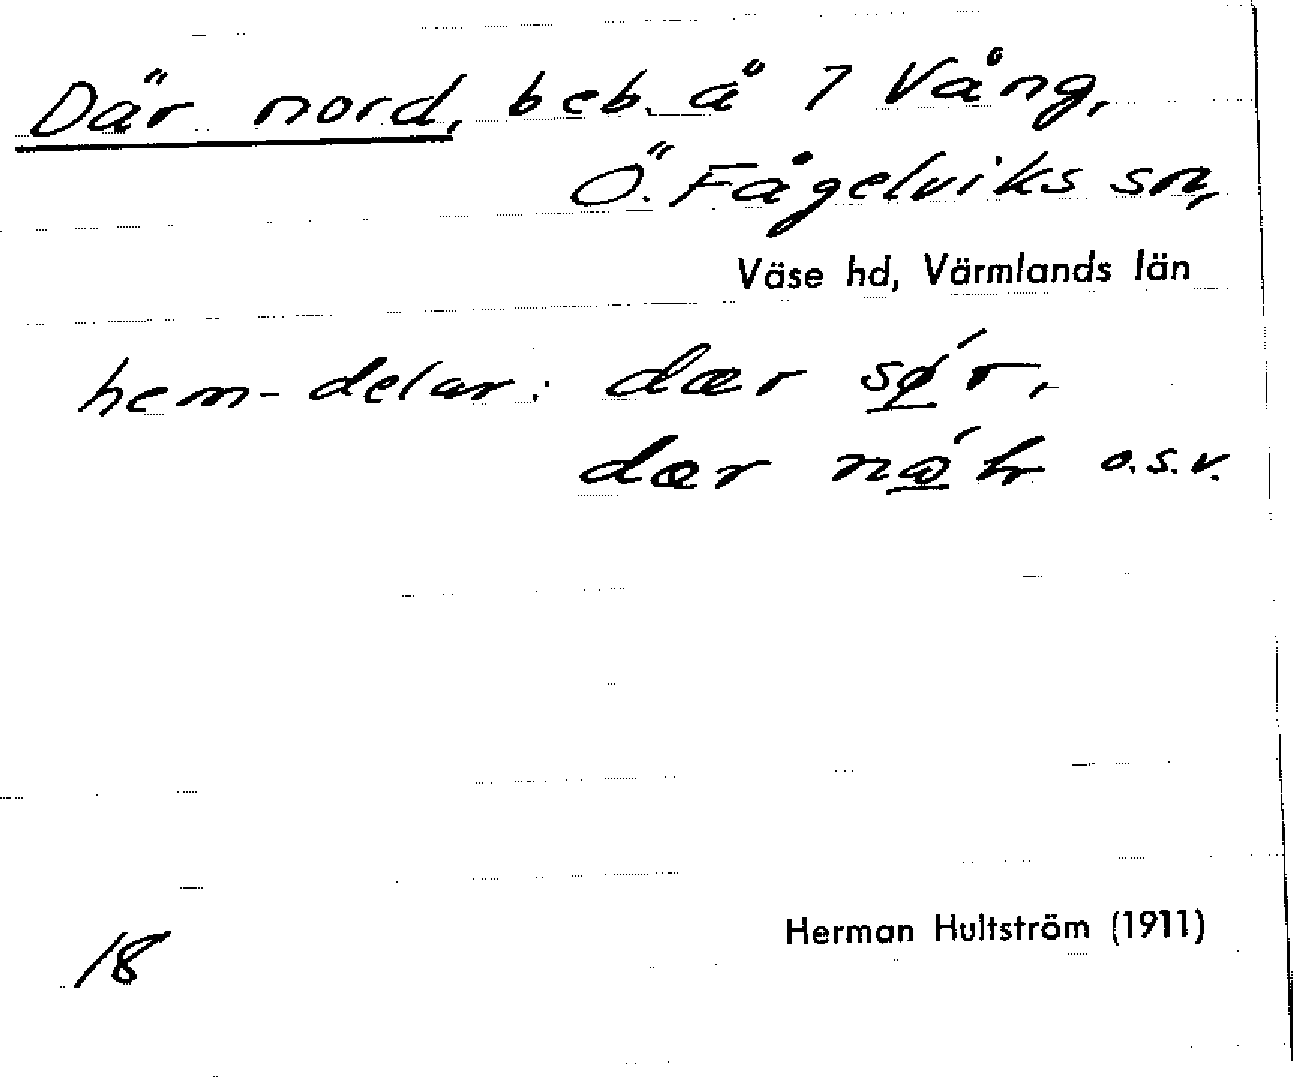 Där nord, beb. å 7 Vång,
Ö. Fågelviks sn,
Väse hd, Värmlands län
hem-delar: dær sǿr,
dær o.s.v.
18
Herman Hultström (1911)